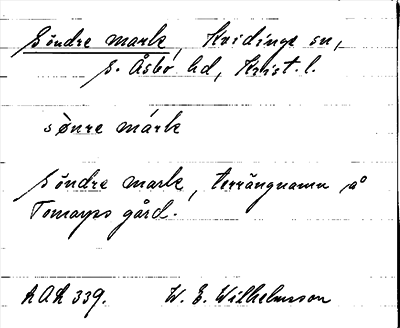 Söndre mark, Kvidinge sn,
S. Åsbo hd, Krist. l.
sønre márk
Söndre mark, terrängnamn på
Tomarps gård.
AAA 339. W. E. Wilhelmsson